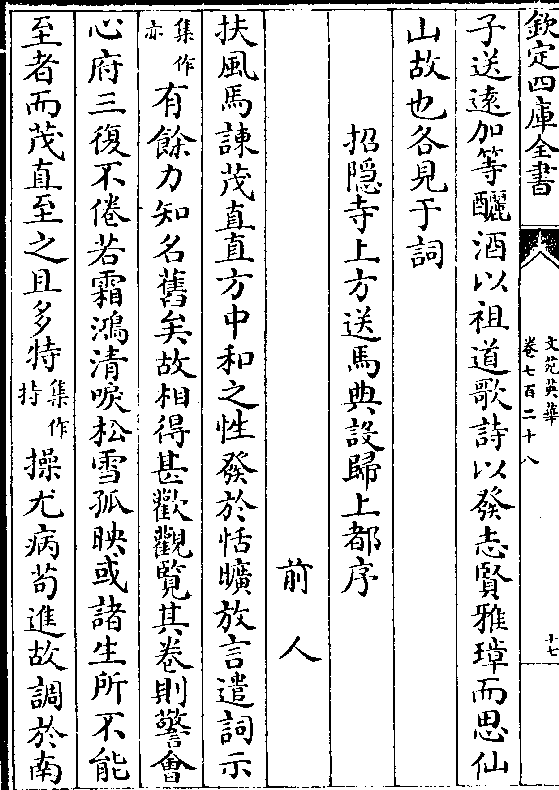 欽定四庫全書
文苑英華
卷七百二十八
十七
子送遠加等釃酒以祖道歌詩以發志賢雅璋而思仙
山故也各見于詞
招隠寺上方送馬典設歸上都序
前人
扶風馬諫茂直直方中和之性發於恬曠放言遣詞示
集作
亦
有餘力知名舊矣故相得甚歡觀覽其卷則警會
心府三復不倦若霜鴻清唳松雪孤映或諸生所不能
至者而茂直至之且多特
集作
持
操尤病苟進故調於南